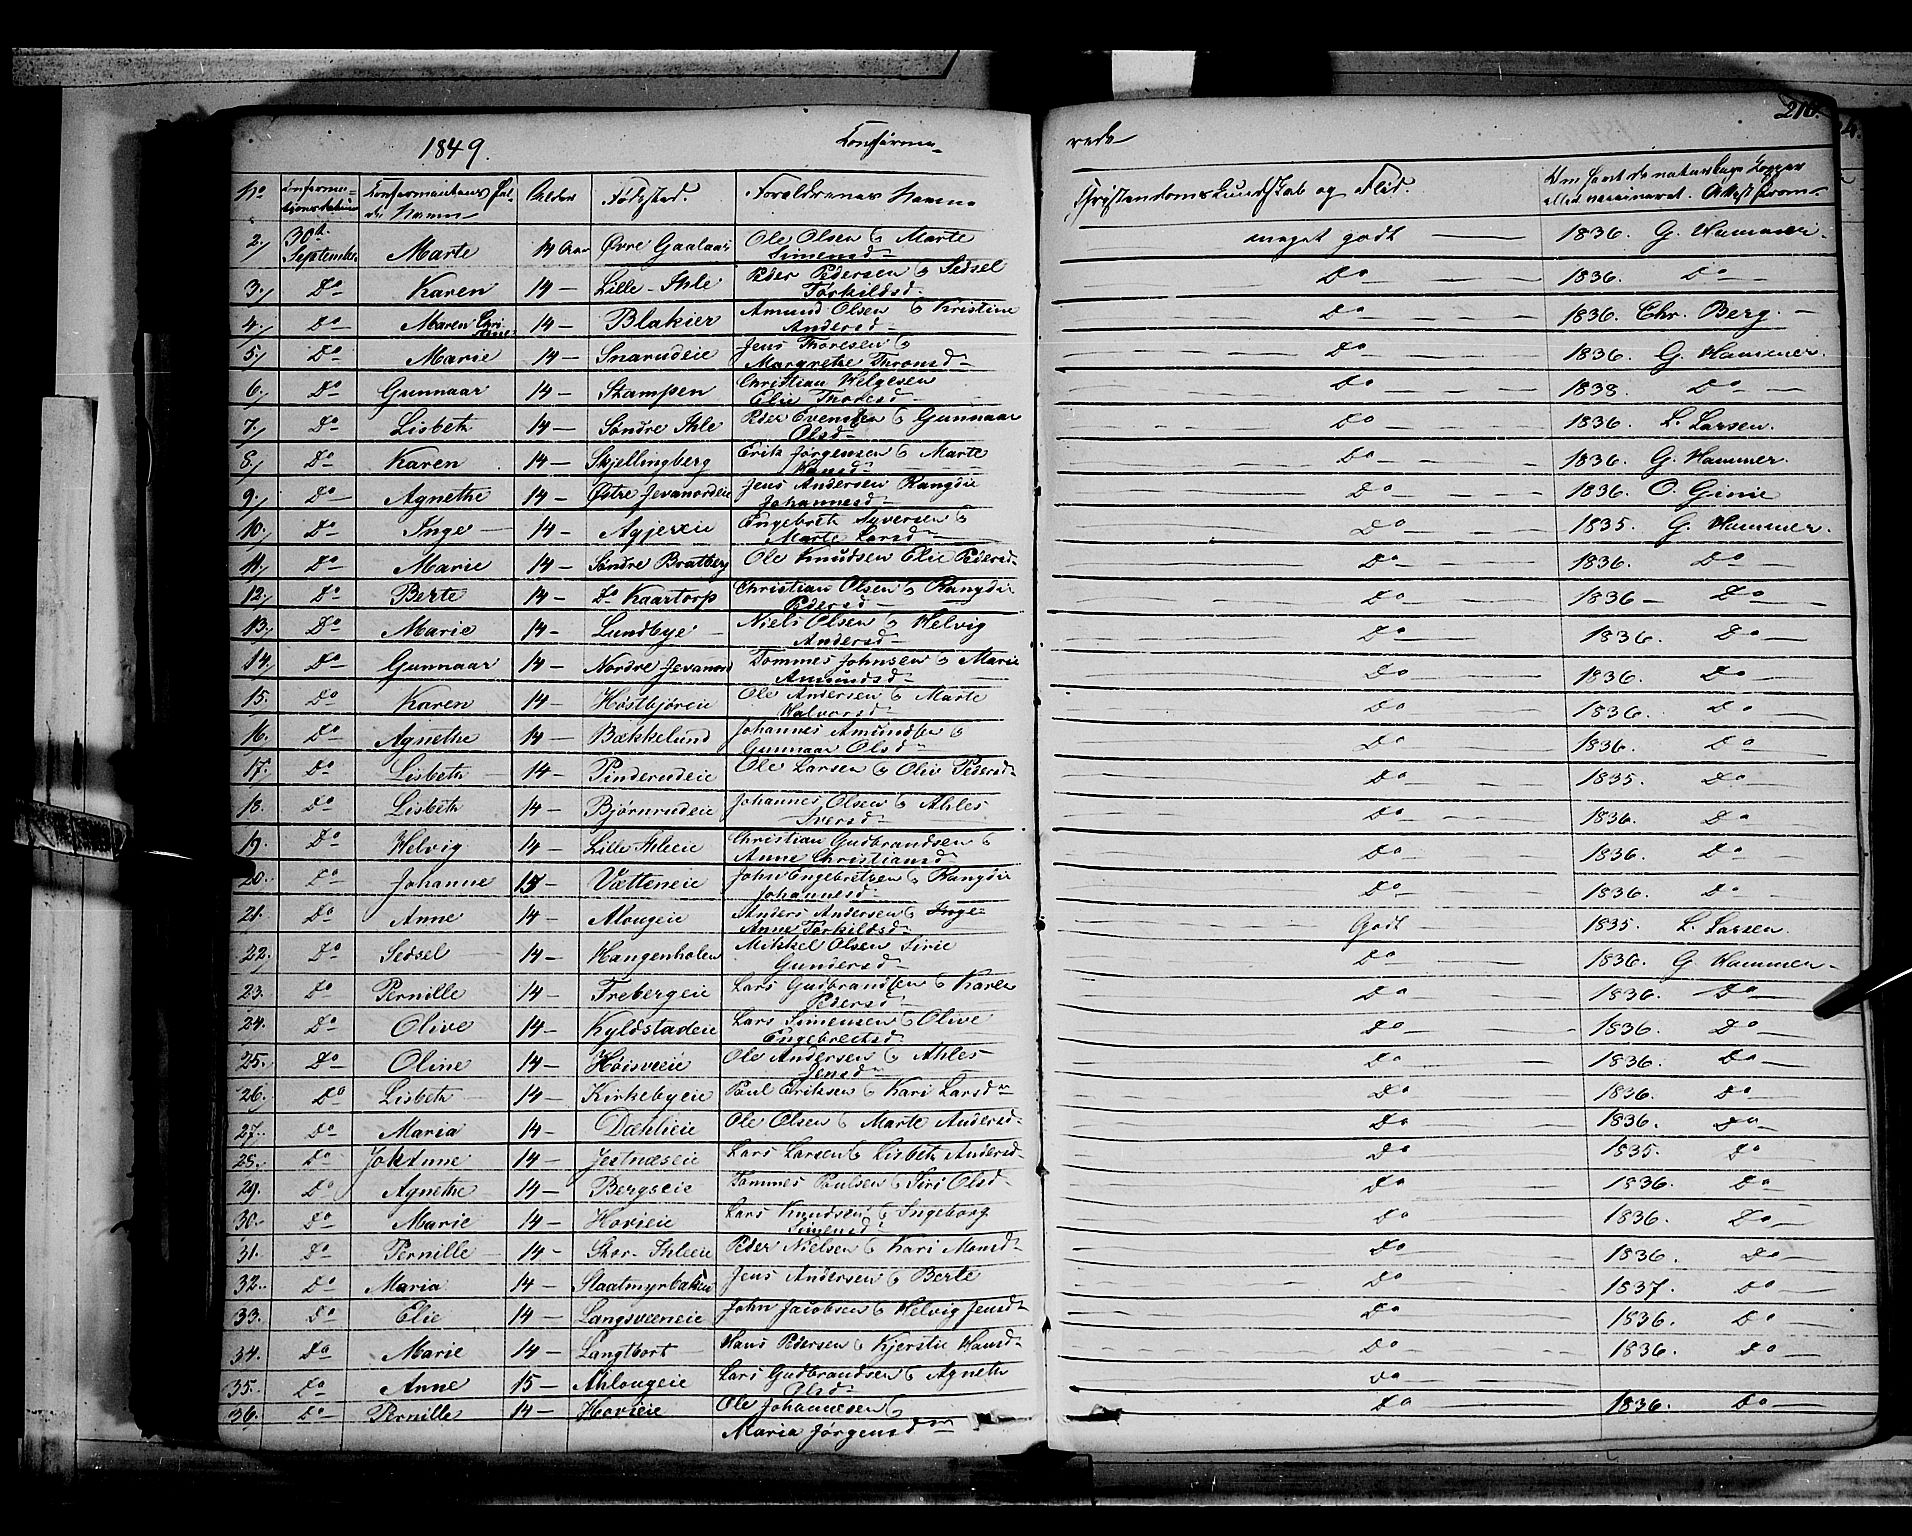 1849. Confirme- rede 210.
No Confirma- tions Datum Confirmantens Ful- de Navn Alder Fødested. Forældrenes Navne Christendoms Kundskab og Flid. Om havt de naturlige Kopper eller vaccineret. Attest fra
2 30te September Marte 14 Aar Øvre Gaalaas Ole Olsen & Marte Simensd meget godt 1836. G. Hammer.
3 Do Karen 14 Lille-Ihle Peder Pedersen & Sidsel Torkildsd. Do 1836. Do
4 Do Maren Chri- stine 14 Blakier Amund Olsen & Kristine Andersd Do 1836. Chr. Berg.
5 Do Marie 14 Snarudeie Jens Thoresen & Margrethe Thronsd Do 1836. G. Hammer.
6 Do Gunnaar 14 Stampen Christian Helgesen Elie Thoresd Do 1838. Do
7 Do Lisbeth 14 Søndre Ihle Peder Evensen & Gunnaar Olsd Do 1836. L. Larsen.
8 Do Karen 14 Skjellingberg Erik Jørgensen & Marte Hansd Do 1836. G. Hammer.
9 Do Agnethe 14 Østre Jevanordeie Jens Andersen Rangdie Johannesd Do 1836. O.
10 Do Inge 14 Engebreth & Marte Larsd Do 1835. G. Hammer.
11 Do Marie 14 Søndre Bratberg Ole Knudsen Elie Pedersd Do 1836. Do
12 Do Berte 14 Do Kaartorp Christian Olsen & Rangdie Pedersd Do 1836 Do
13 Do Marie 14 Lundbye Niels Olsen & Helvig Andersd Do 1836. Do
14 Do Gunnaar 14 Nordre Jevanord Tommes Johnsen & Marie Amundsd Do 1836. Do
15. Do Karen 14 Høstbjøreie Ole Andersen & Marte Halvorsd Do 1836. Do
16. Do Agnethe 14 Bækkelund Johannes Amundsen & Gunnaar Olsd Do 1836. Do
17. Do Lisbeth 14 Pinderudeie Ole Larsen & Olive Pedersd Do 1835. Do
18. Do Lisbeth 14 Bjørnrudeie Johannes Olsen & Ahles Iversd Do 1836. Do
19. Do Helvig 14 Lille Ihleeie Christian Gudbrandsen & Anne Christiansd Do 1836. Do
20. Do Johanne 15 Vætteneie John Engebretsen & Rangdie Johannesd Do 1836. Do
21. Do Anne 14 Alougeie Anders Andersen & Inge Anne Torkildsd Godt 1835. L. Larsen.
22. Do Sidsel 14 Hangenholen Mikkel Olsen Sirie Gundersd Do 1836. G. Hammer
23. Do Pernille 14 Frebergeie Lars Gudbrandsen & Karen Pedersd Do 1836. Do
24. Do Olive 14 Kyldstadeie Lars Simensen & Olive Engebretsd Do 1836. Do
25. Do Oline 14 Høisveeie Ole Andersen & Ahles Jensd Do 1836. Do
26. Do Lisbeth 14 Kirkebyeie Paul Eriksen & Kari Larsd Do 1836. Do
27. Do Maria 14 Dæhlieie Ole Olsen & Marte Andersd Do 1836. Do
28. Do JohAnne 14 Jestnæseie Lars Larsen & Lisbeth Andersd Do 1835. Do
29. Do Agnethe 14 Bergseie Tommes Paulsen & Siri Olsd Do 1836. Do
30. Do Marie 14 Hovieie Lars Knudsen & Ingeborg Simensd Do 1836. Do
31. Do Pernille 14 Stor-Ihleeie Peder Nielsen & Kari Monsd Do 1836. Do
32. Do Maria 14 Staatmyrbakken Jens Andersen & Berte Do 1837. Do
33. Do Elie 14 Langsveeneie John Jacobsen & Helvig Jensd Do 1836. Do
34. Do Marie 14 Langtbort Hans Pedersen & Kjerstie Hansd Do 1836. Do
35. Do Anne 15 Ahlougeie Lars Gudbrandsen & Agneth Olsd Do
36. Do Pernille 14 Hovieie Ole Johannesen & Maria Jørgensd Do 1836. Do